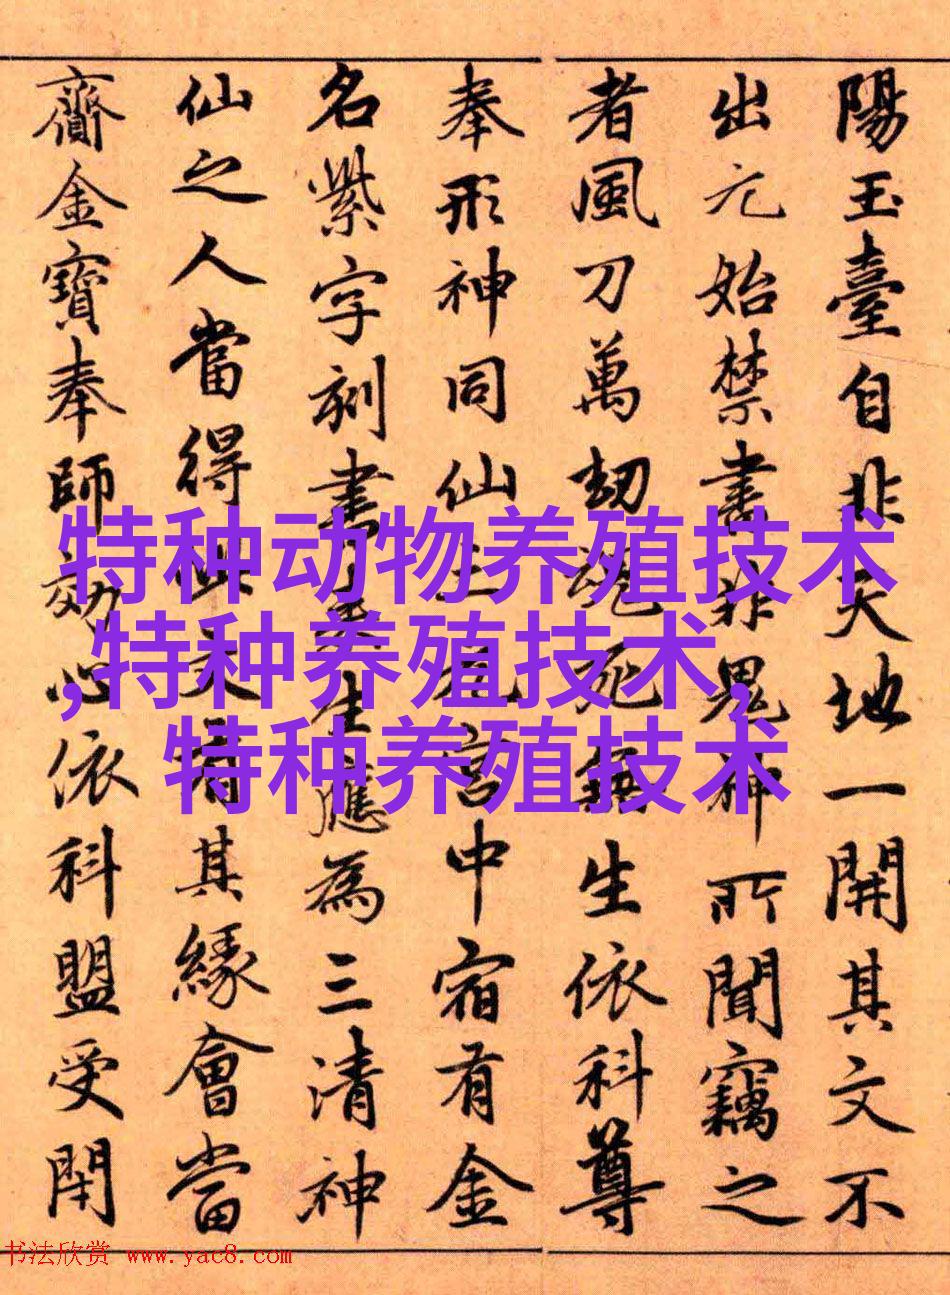 陽玉臺自非天地一開其文不
出元始禁書非鬼神所聞竊之
者風刀萬劫魂死無生依科尊
奉形神同仙上元宮中宿有金
名紫字刻書生應為三清神
仙之人當得此文有其緣會當
齎金寶奉師効心依科盟受閇
特种动物养殖技术
,特种养殖技术,
特种养殖技术
书法欣赏 www.yac8.com